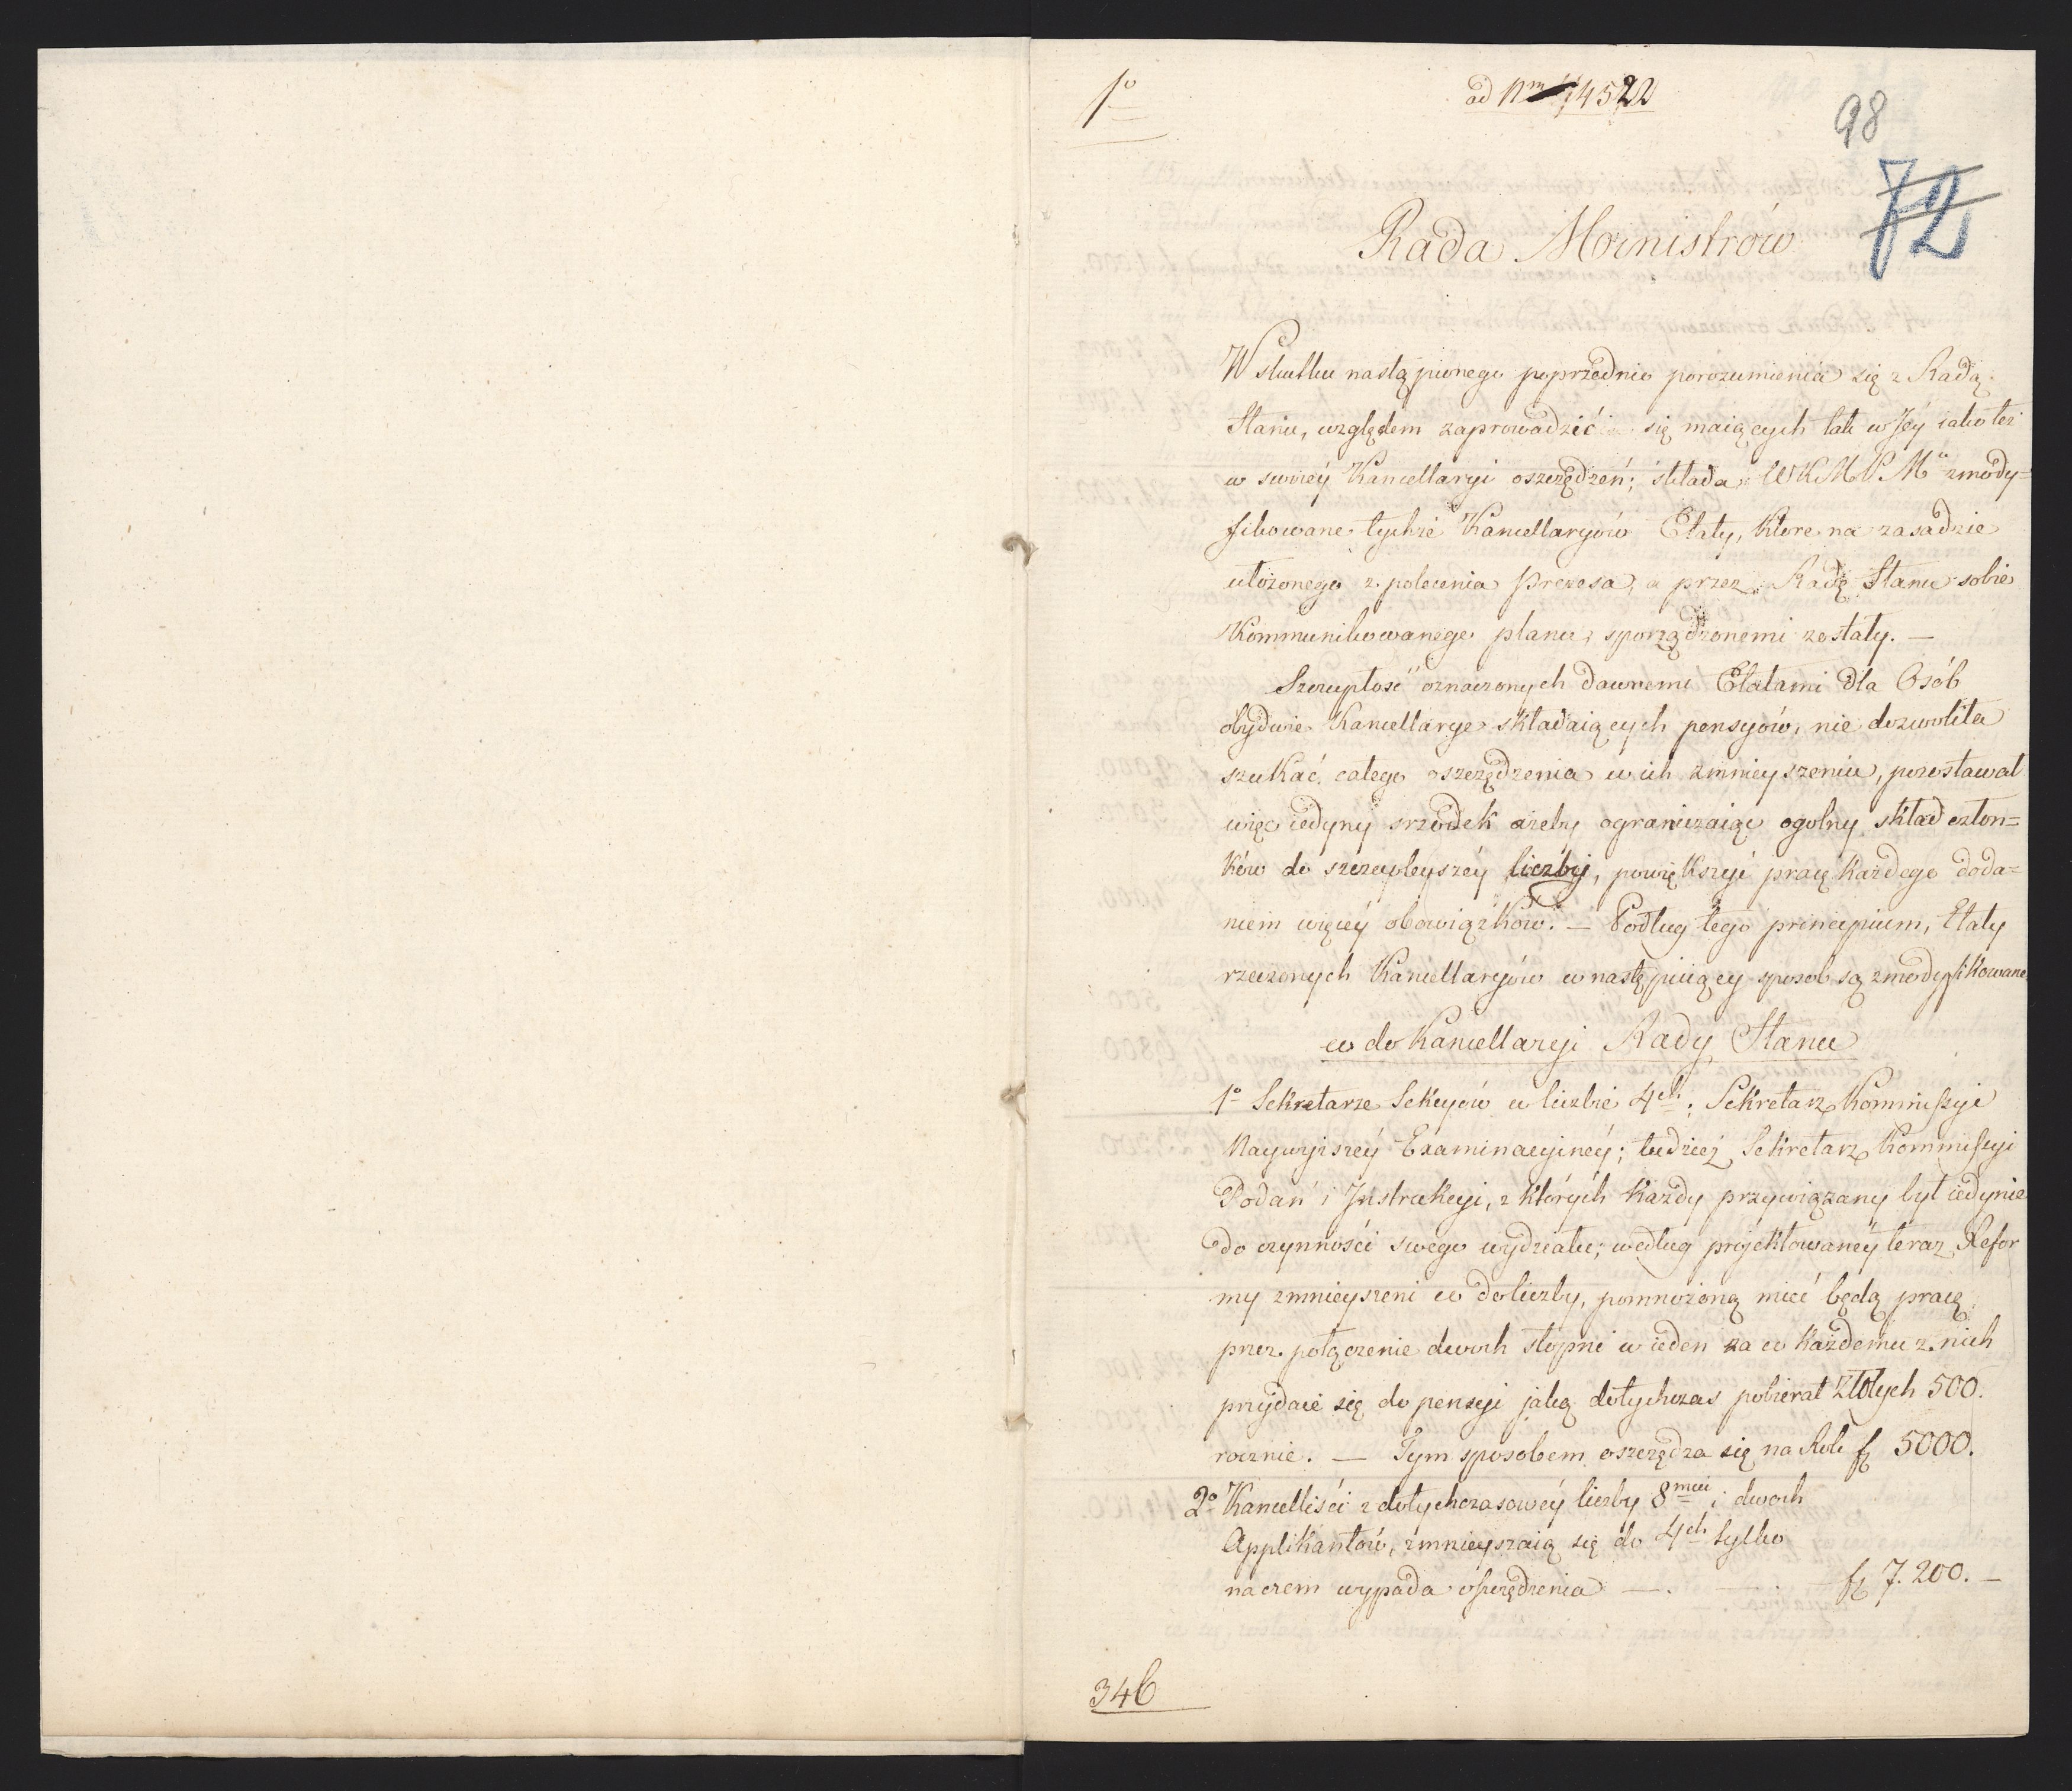 1º
ad Nrm 14522
98
72
Rada Ministrów
W skutku nastąpionego poprzednio porozumienia się z Radą
Stanu, względem zaprowadzić się maiących tak w Jéy iako też
w swoiéy Kancellaryi oszczędzeń; składa WKMPMu zmody=
fikowane tychże Kancellaryów Etaty, które na zasadzie
ułożonego z polecenia Prezesa, a przez Radę Stanu sobie
Kommunikowanego planu, sporządzonemi zostały. —
Szczupłość oznaczonych dawnemi Etatami dla Osób
obydwie Kancellarye składaiących pensyów, nie dozwoliła
szukać całego oszczędzenia w ich zmnieyszeniu, pozostawał
więc iedyny srzodek ażeby ograniczaiąc ogolny skład człon=
ków do szczupleyszéy liczby, powiększyć pracę każdego doda=
niem więcéy obowiązków. — Podług tego principium, Etaty
rzeczonych Kancellaryów w nastę̨puiący sposob są zmodyfikowane
co do Kancellaryi Rady Stanu
1º Sekretarze Sekcyów w liczbie 4ch; Sekretarz Kommissyi
Naywyższéy Examinacyinéy; tudzież Sekretarz Kommissyi
Podań i Instrukcyi, z których każdy przywiązany był iedynie
do czynności swego wydziału; według projektowanéy teraz Refor
my zmnieyszeni co do liczby, pomnożoną mieć będą pracę
przez połączenie dwoch stopni w ieden za co każdemu z nich
przydaie się do pensyi jaką dotychczas pobierał Złotych 500.
rocznie. — Tym sposobem oszczędza się na Rok fl 5000.
2º Kancelliści z dotychczasowéy liczby 8miu i dwoch
Applikantów, zmnieyszaią się do 4ch tylko
na czem wypada oszczędzenia —. — . — fl 7.200. —
346